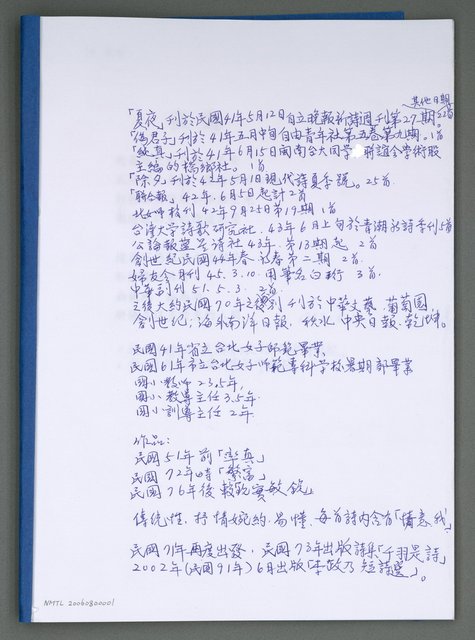 其他日期
「夏夜」刊於民國41年5月12日自立晚報新詩週刊第27期。
「偽君子」刊於41年五月中旬自由青年社第五卷第九期。1首
「純真」刊於41年6月15日閩南台大同學聯誼會學術股
主編的橋鄉社。1首
「除夕」刊於42年5月1日現代詩夏季號。25首.
「聯合報」42年.6月5日起計2首
北女師校刊42年9月25日第19期1首
台灣大學詩歌研究社.43年6月上旬於青潮新詩季刊5首
公論報藍星詩社43年.第13期起 2首
創世紀民國44年春.詩卷第二期 2首.
婦友会月刊45.3.10.用筆名白珩 3首.
中華副刊51.5.3. 2首.
之後大約民國70年之後.刊於中華文藝.葡萄園.
創世紀.海外南洋日報.秋水.中央日報.乾坤.
民國41年省立台北女子師範畢業
民國61年市立台北女子師範專科学校暑期部畢業
國小教师23.5年,
國小教導主任3.5年.
國小訓導主任2年.
作品:
民國51年前「率真」
民國72年時「繁富」
民國76年後 較銳實敏銳」
傳統性,抒情婉約.易懂.每首詩内含有「情意我」
民國71年再度出發,民國73年出版詩集「千羽是詩」
2002年(民國91年)6月出版「李政乃短詩選」。
NMTL 20060800001